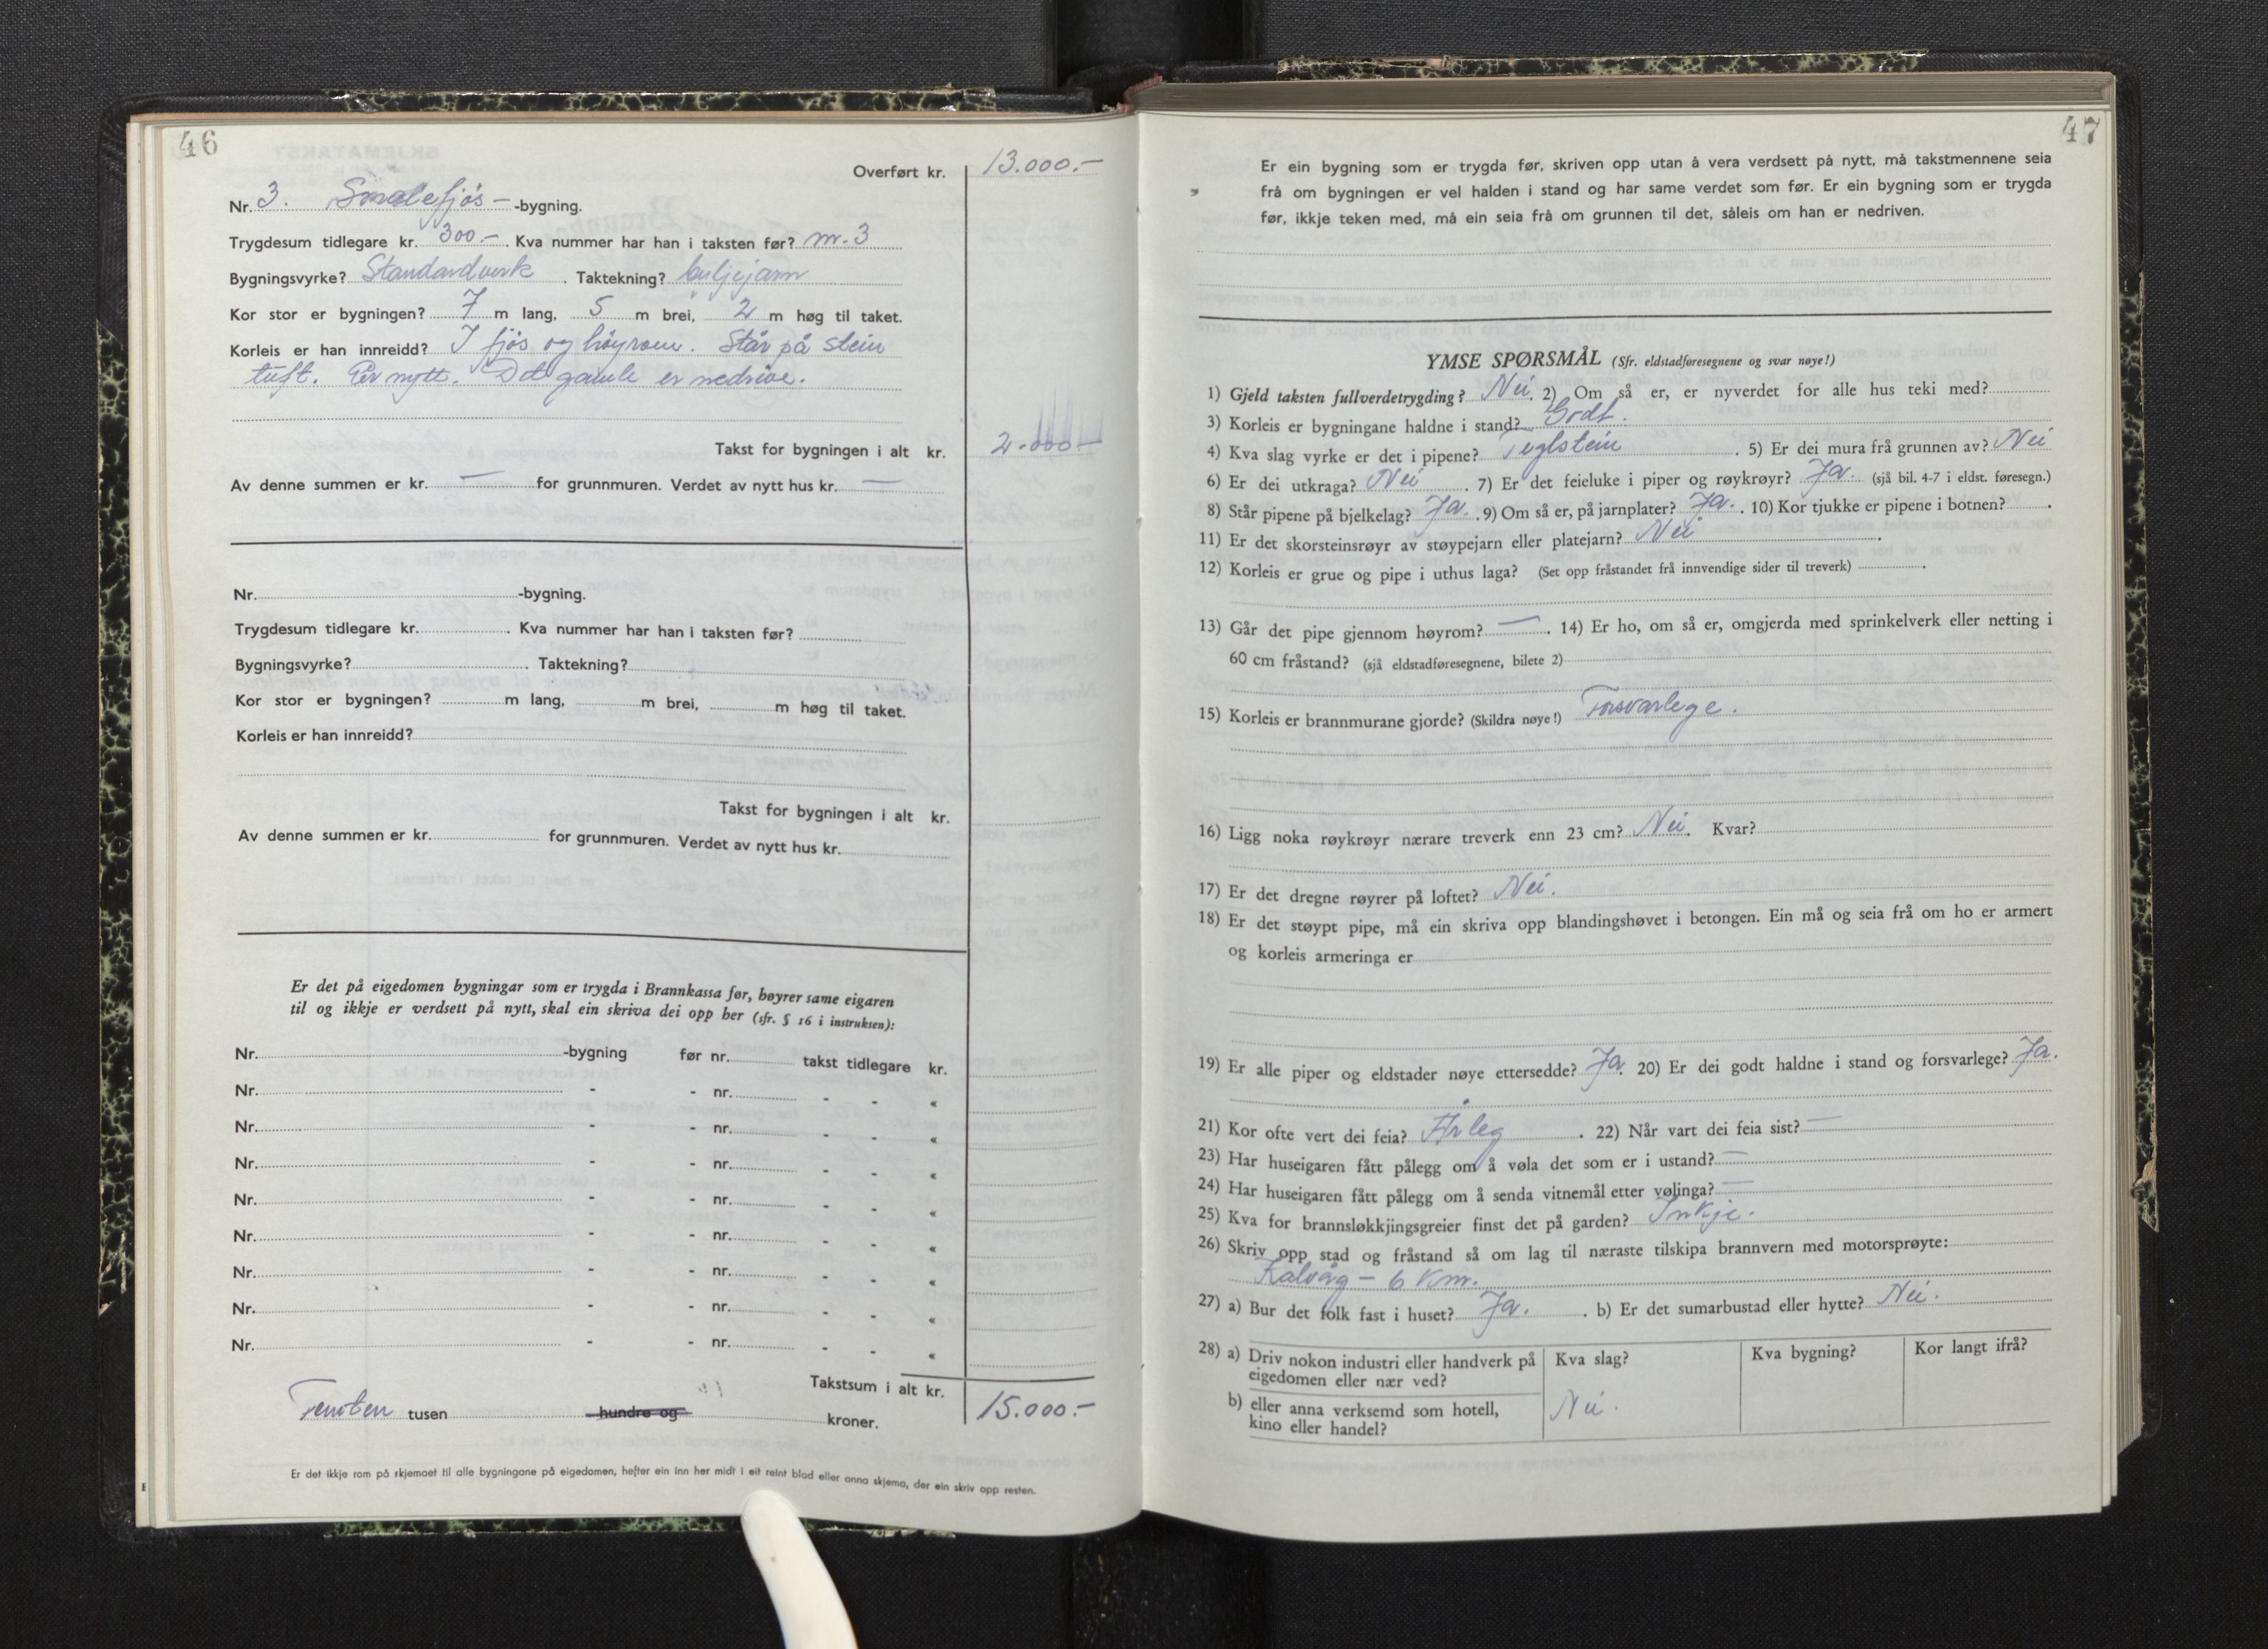 46
Overført kr. 13.000.-
Nr. 3. Smalefjøs- -bygning.
Trygdesum tidlegare kr. 300.- . Kva nummer har han i taksten før? nr. 3
Bygningsvyrke? Standardverk . Taktekning? bylgjejarn
Kor stor er bygningen? 7 m lang, 5 m brei, 2 m høg til taket.
Korleis er han innreidd? I fjøs og høyrom. Står på stein
tuft. Er nytt. Det gamle er nedrive.
Takst for bygningen i alt kr. 2.000-
Av denne summen er kr. — for grunnmuren. Verdet av nytt hus kr. —
Nr. -bygning.
Trygdesum tidlegare kr. . Kva nummer har han i taksten før?
Bygningsvyrke? . Taktekning?
Kor stor er bygningen? m lang, m brei, m høg til taket.
Korleis er han innreidd?
Takst for bygningen i alt kr.
Av denne summen er kr. for grunnmuren. Verdet av nytt hus kr.
Er det på eigedomen bygningar som er trygda i Brannkassa før, høyrer same eigaren
til og ikkje er verdsett på nytt, skal ein skriva dei opp her (sfr. § 16 i instruksen):
Nr. -bygning før nr. takst tidlegare kr.
Nr. - - nr. - - «
Nr. - - nr. - - «
Nr. - - nr. - - «
Nr. - - nr. - - «
Nr. - - nr. - - «
Nr. - - nr. - - «
Nr. - - nr. - - «
Nr. - - nr. - - «
Takstsum i alt kr. 15.000.-
Femten tusen hundre og kroner.
Er det ikkje rom på skjemaet til alle bygningane på eigedomen, hefter ein inn her midt i eit reint blad eller anna skjema, der ein skriv opp resten.
47
Er ein bygning som er trygda før, skriven opp utan å vera verdsett på nytt, må takstmennene seia
frå om bygningen er vel halden i stand og har same verdet som før. Er ein bygning som er trygda
før, ikkje teken med, må ein seia frå om grunnen til det, såleis om han er nedriven.
YMSE SPØRSMÅL (Sfr. eldstadføresegnene og svar nøye!)
1) Gjeld taksten fullverdetrygding? Nei. 2) Om så er, er nyverdet for alle hus teki med?
3) Korleis er bygningane haldne i stand? Godt.
4) Kva slag vyrke er det i pipene? Teglstein . 5) Er dei mura frå grunnen av? Nei
6) Er dei utkraga? Nei . 7) Er det feieluke i piper og røykrøyr? Ja. (sjå bil. 4-7 i eldst. føresegn.)
8) Står pipene på bjelkelag? Ja. . 9) Om så er, på jarnplater? Ja. . 10) Kor tjukke er pipene i botnen? .
11) Er det skorsteinsrøyr av støypejarn eller platejarn? Nei .
12) Korleis er grue og pipe i uthus laga? (Set opp fråstandet frå innvendige sider til treverk) .
13) Går det pipe gjennom høyrom? — . 14) Er ho, om så er, omgjerda med sprinkelverk eller netting i
60 cm fråstand? (sjå eldstadføresegnene, bilete 2)
15) Korleis er brannmurane gjorde? (Skildra nøye!) Forsvarlege.
16) Ligg noka røykrøyr nærare treverk enn 23 cm? Nei. Kvar?
17) Er det dregne røyrer på loftet? Nei.
18) Er det støypt pipe, må ein skriva opp blandingshøvet i betongen. Ein må og seia frå om ho er armert
og korleis armeringa er
19) Er alle piper og eldstader nøye ettersedde? Ja. 20) Er dei godt haldne i stand og forsvarlege? Ja.
21) Kor ofte vert dei feia? Årleg . 22) Når vart dei feia sist? —
23) Har huseigaren fått pålegg om å vøla det som er i ustand? —
24) Har huseigaren fått pålegg om å senda vitnemål etter vølinga? —
25) Kva for brannsløkkjingsgreier finst det på garden? Inkje.
26) Skriv opp stad og fråstand så om lag til næraste tilskipa brannvern med motorsprøyte:
Kalvåg - 6 km.
27) a) Bur det folk fast i huset? Ja. . b) Er det sumarbustad eller hytte? Nei.
28) a) Driv nokon industri eller handverk på Kva slag? Kva bygning? Kor langt ifrå?
eigedomen eller nær ved?
b) eller anna verksemd som hotell, Nei.
kino eller handel?